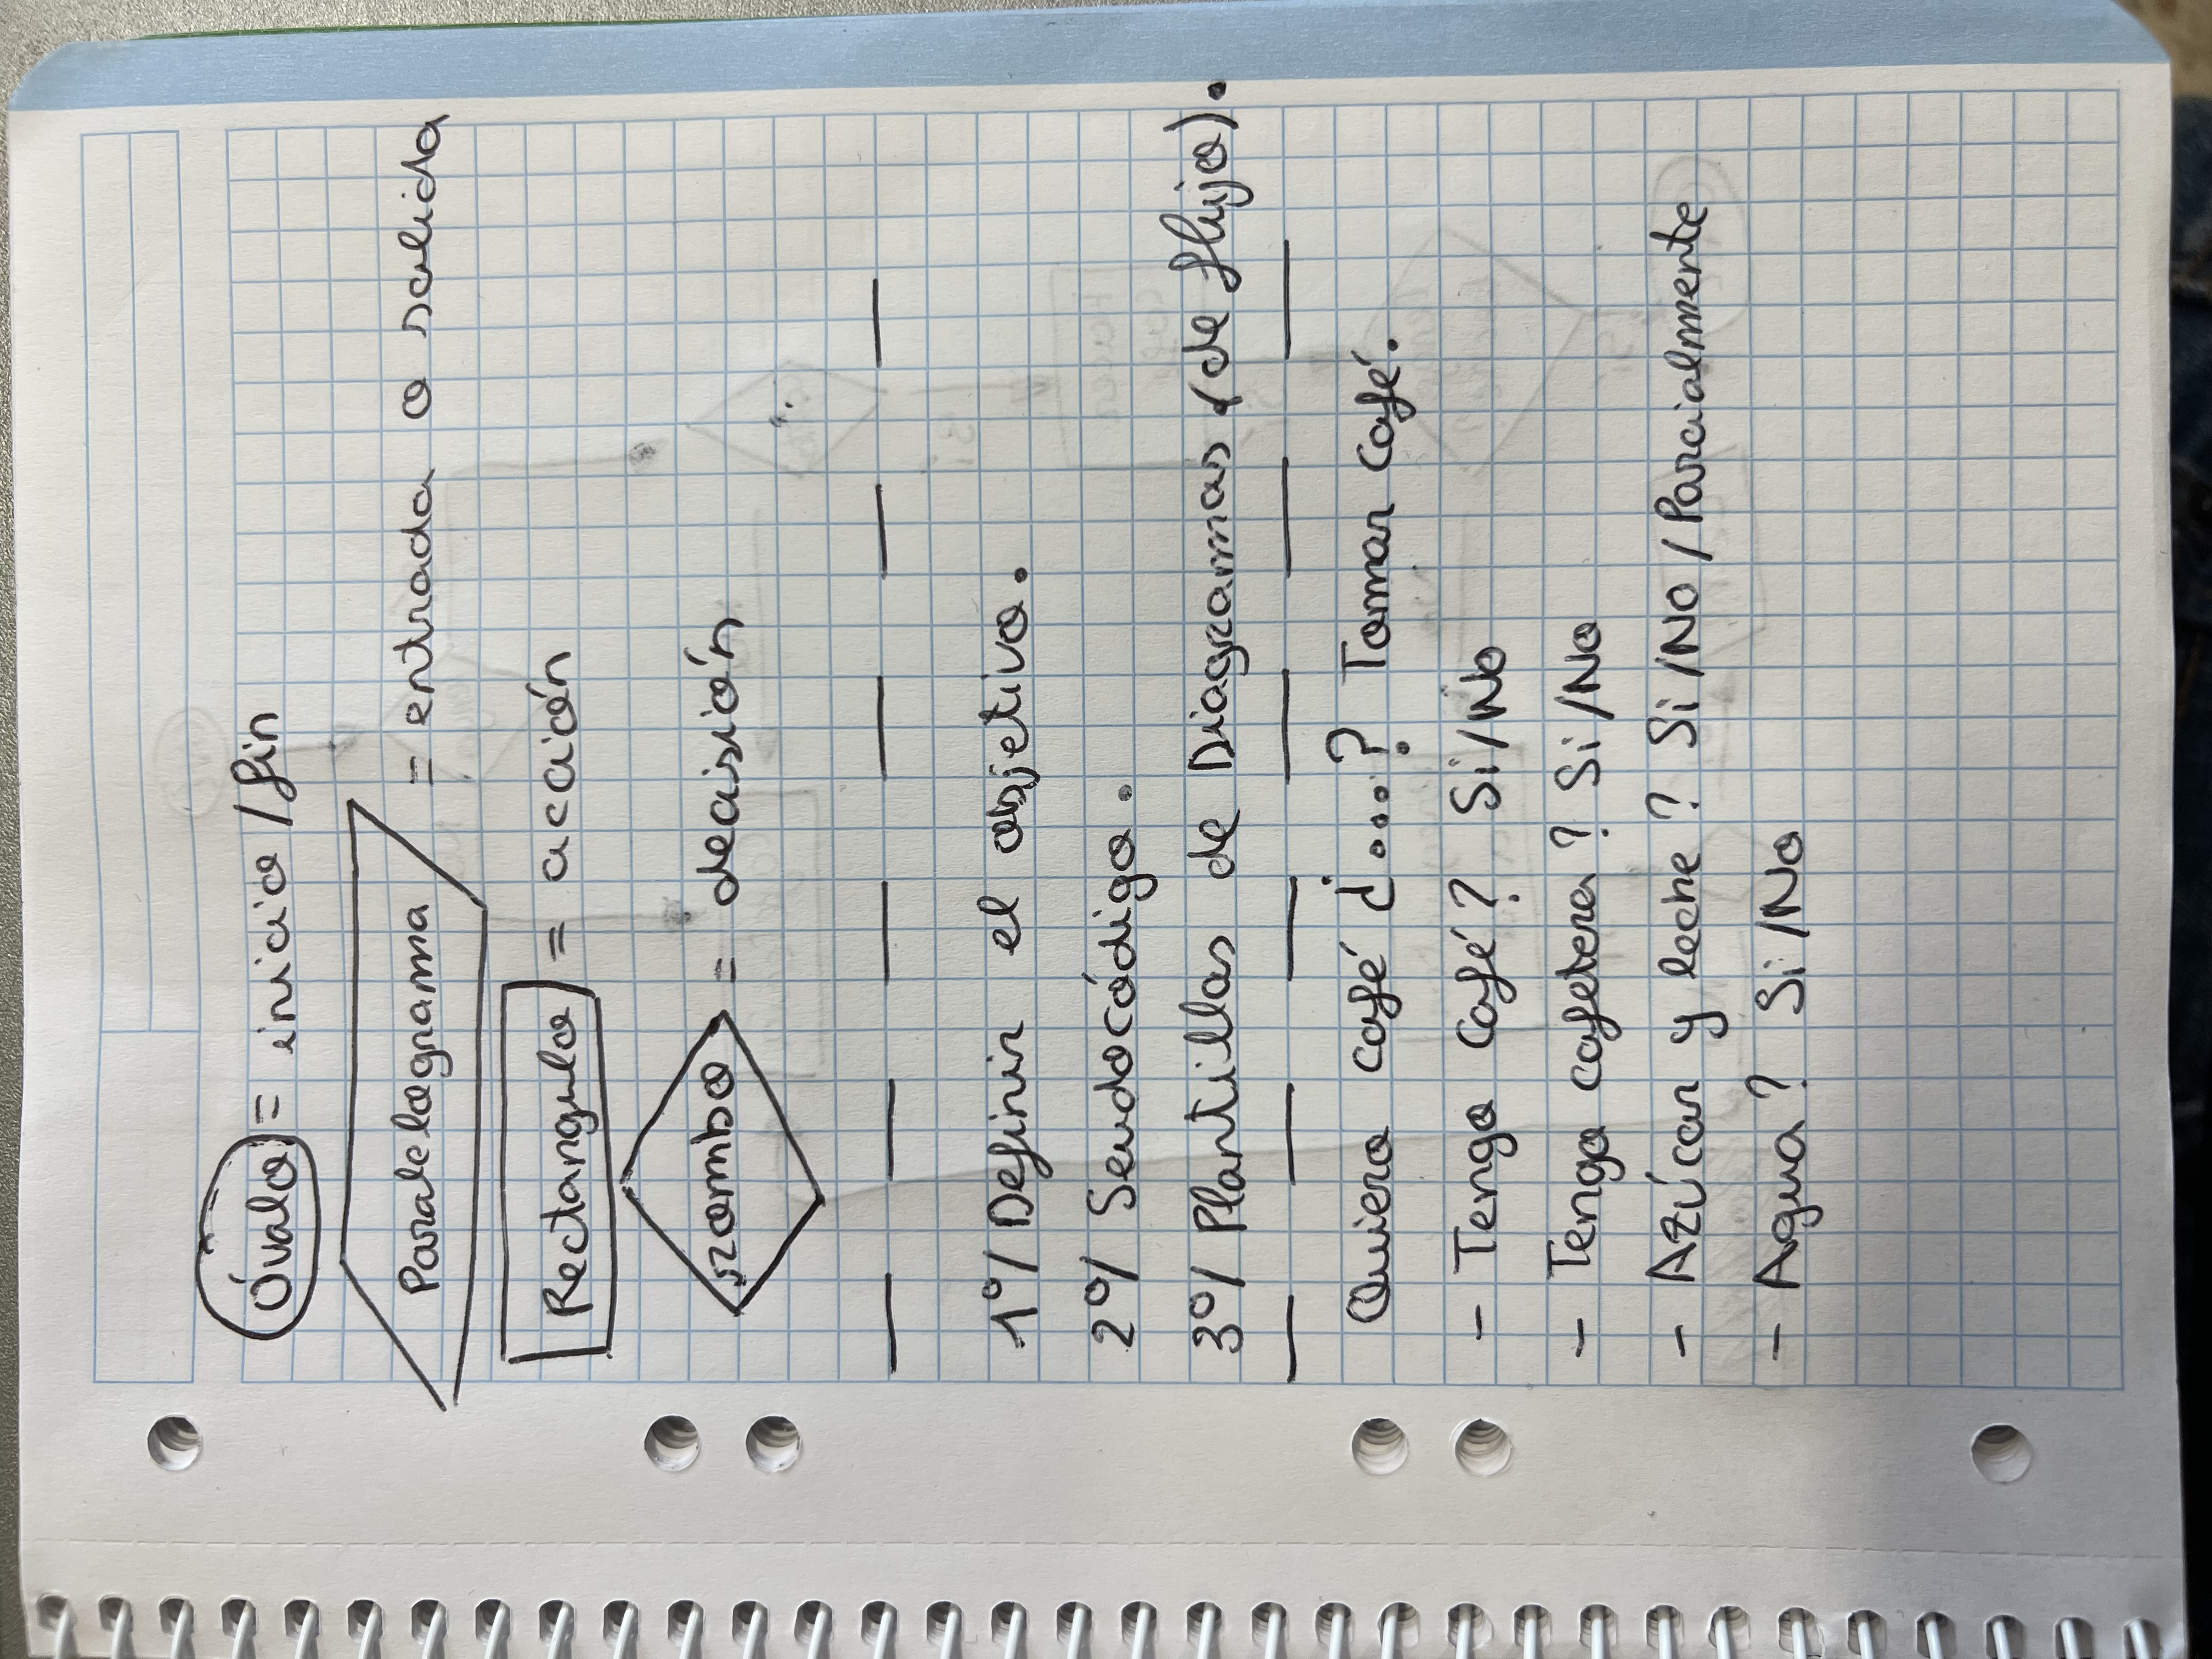 Óvalo = inicio / fin
Paralelogramma = entrada o salida
Rectangulo = acción
rombo = decisión
1º/ Definir el objetivo.
2º/ Seudocódigo.
3º/ Plantillas de Diagramas (de flujo).
Quiero café ¿...? Tomar café.
- Tengo café? Si/No
- Tengo cafetera? Si/No
- Azúcar y leche? Si/No/Parcialmente
- Agua? Si/No